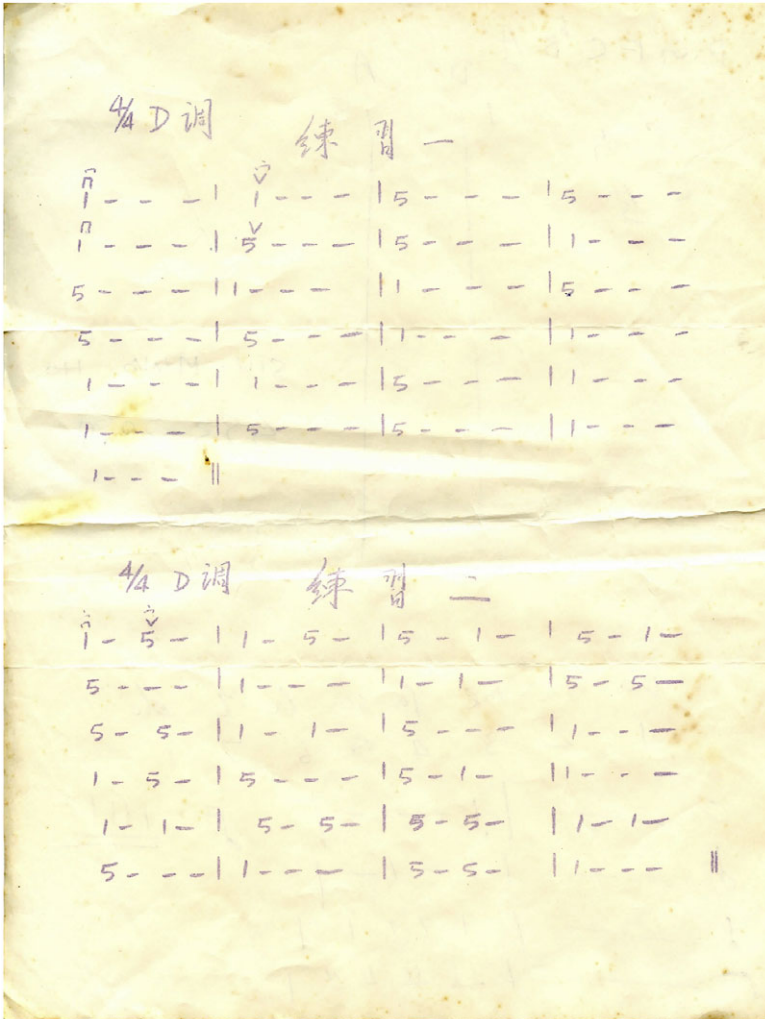 4/4 D 调
练 習 一
1 - - - | 1 - - - | 5 - - - | 5 - - -
1 - - - | 5 - - - | 5 - - - | 1 - - -
5 - - - | 1 - - - | 1 - - - | 5 - - -
5 - - - | 5 - - - | 1 - - - | 1 - - -
1 - - - | 1 - - - | 5 - - - | 1 - - -
1 - - - | 5 - - - | 5 - - - | 1 - - -
1 - - - ‖
4/4 D 调 练 習 二
1 - 5 - | 1 - 5 - | 5 - 1 - | 5 - 1 -
5 - - - | 1 - - - | 1 - 1 - | 5 - 5 -
5 - 5 - | 1 - 1 - | 5 - - - | 1 - - -
1 - 5 - | 5 - - - | 5 - 1 - | 1 - - -
1 - 1 - | 5 - 5 - | 5 - 5 - | 1 - 1 -
5 - - - | 1 - - - | 5 - 5 - | 1 - - - ‖